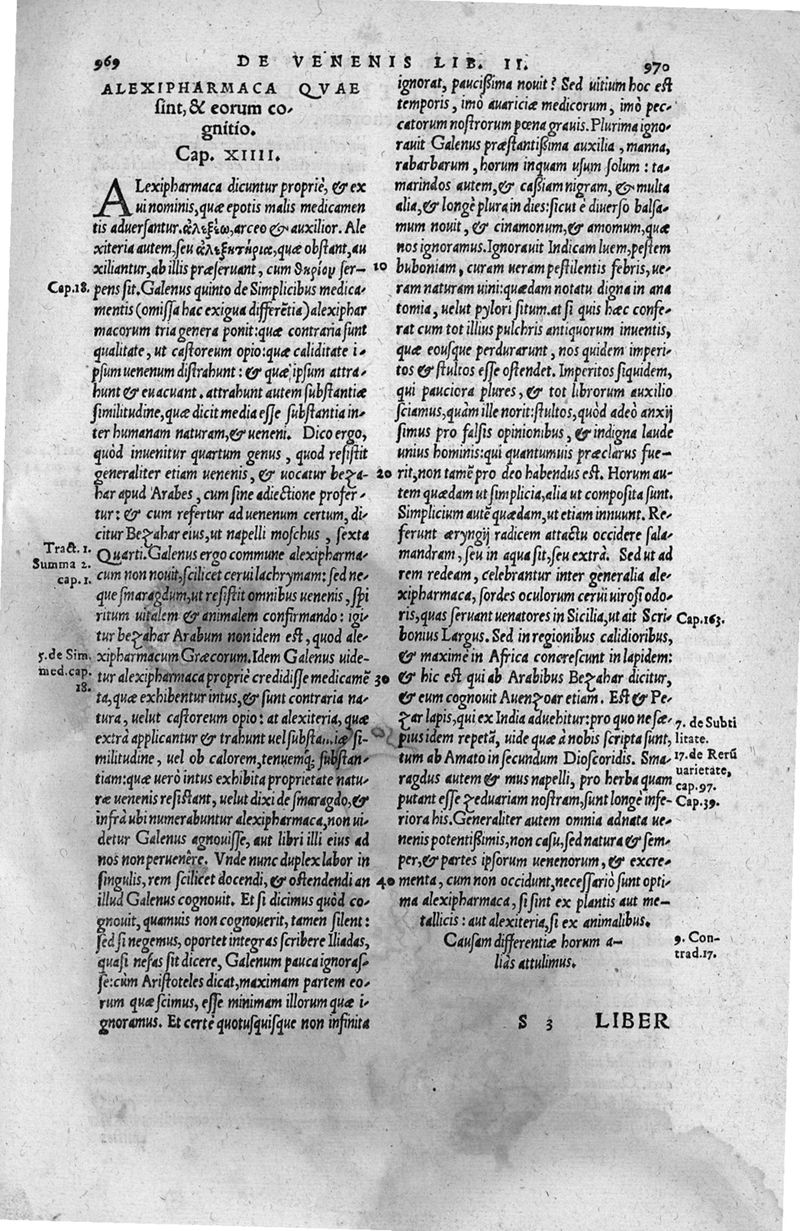 969
DE VENENIS LIB. II.
970
ALEXIPHARMACA QVAE
sint, & eorum co-
gnitio.
Cap. XIIII.
ALexipharmaca dicuntur propriè, & ex
ui nominis, quæ epotis malis medicamen
tis aduersantur. ἀλεξέω, arceo & auxilior. Ale
xiteria autem, seu ἀλεξητήρια, quæ obstant, au
xiliantur, ab illis præseruant, cum θηρίου ser-
Cap. 18.
pens sit. Galenus quinto de Simplicibus medica-
mentis (omissa hac exigua differẽtia) alexiphar
macorum tria genera ponit: quæ contraria sunt
qualitate, ut castoreum opio: quæ caliditate i-
psum uenenum distrahunt: & quæ ipsum attra-
hunt & euacuant. attrahunt autem substantiæ
similitudine, quæ dicit media esse substantia in-
ter humanam naturam, & ueneni. Dico ergo,
quòd inuenitur quartum genus, quod resistit
generaliter etiam uenenis, & uocatur beza-
har apud Arabes, cum sine adiectione profer-
tur: & cum refertur ad uenenum certum, di-
citur Bezahar eius, ut napelli moschus, sexta
Tract. 1.
Summa 2.
cap. 1.
Quarti. Galenus ergo commune alexipharma-
cum non nouit, scilicet cerui lachrymam: sed ne-
que smaragdum, ut resistit omnibus uenenis, spi
ritum uitalem & animalem confirmando: igi-
tur bezahar Arabum non idem est, quod ale-
5. de Sim.
med. cap.
18.
xipharmacum Græcorum. Idem Galenus uide-
tur alexipharmaca propriè credidisse medicamẽ
ta, quæ exhibentur intus, & sunt contraria na-
tura, uelut castoreum opio: at alexiteria, quæ
extrà applicantur & trahunt uel substantiæ si-
militudine, uel ob calorem, tenuemq́; substan-
tiam: quæ uerò intus exhibita proprietate natu-
ræ uenenis resistant, uelut dixi de smaragdo, &
infrà ubi numerabuntur alexipharmaca, non ui-
detur Galenus agnouisse, aut libri illi eius ad
nos non peruenêre. Vnde nunc duplex labor in
singulis, rem scilicet docendi, & ostendendi an
illud Galenus cognouit. Et si dicimus quòd co-
gnouit, quamuis non cognouerit, tamen silent:
sed si negemus, oportet integras scribere Iliadas,
quasi nefas sit dicere, Galenum pauca ignoras-
se: cùm Aristoteles dicat, maximam partem eo-
rum quæ scimus, esse minimam illorum quæ i-
gnoramus. Et certè quotusquisque non infinita
ignorat, paucißima nouit? Sed uitium hoc est
temporis, imò auariciæ medicorum, imò pec-
catorum nostrorum pœna grauis. Plurima igno-
rauit Galenus præstantißima auxilia, manna,
rabarbarum, horum inquam usum solum: ta-
marindos autem, & caßiam nigram, & multa
alia, & longè plura in dies: sicut è diuerso balsa-
mum nouit, & cinamonum, & amomum, quæ
nos ignoramus. Ignorauit Indicam luem, pestem
10
buboniam, curam ueram pestilentis febris, ue-
ram naturam uini: quædam notatu digna in ana
tomia, uelut pylori situm. at si quis hæc confe-
rat cum tot illius pulchris antiquorum inuentis,
quæ eousque perdurarunt, nos quidem imperi-
tos & stultos esse ostendet. Imperitos siquidem,
qui pauciora plures, & tot librorum auxilio
sciamus, quàm ille norit: stultos, quòd adeò anxij
simus pro falsis opinionibus, & indigna laude
unius hominis: qui quantumuis præclarus fue-
20
rit, non tamẽ pro deo habendus est. Horum au-
tem quædam ut simplicia, alia ut composita sunt.
Simplicium autẽ quædam, ut etiam innuunt. Re-
ferunt æryngij radicem attactu occidere sala-
mandram, seu in aqua sit, seu extrà. Sed ut ad
rem redeam, celebrantur inter generalia ale-
xipharmaca, sordes oculorum cerui uirosi odo-
ris, quas seruant uenatores in Sicilia, ut ait Scri-
Cap. 163.
bonius Largus. Sed in regionibus calidioribus,
& maximè in Africa concrescunt in lapidem:
30
& hic est qui ab Arabibus Bezahar dicitur,
& eum cognouit Auenzoar etiam. Est & Pe-
zar lapis, qui ex India aduehitur: pro quo ne sæ-
7. de Subti
litate.
pius idem repetã, uide quæ à nobis scripta sunt,
tum ab Amato in secundum Dioscoridis. Sma-
17. de Rerũ
uarietate,
cap. 97.
ragdus autem & mus napelli, pro herba quam
putant esse zeduariam nostram, sunt longè infe-
Cap. 39.
riora his. Generaliter autem omnia adnata ue-
nenis potentißimis, non casu, sed natura & sem-
per, & partes ipsorum uenenorum, & excre-
40
menta, cum non occidunt, necessariò sunt opti-
ma alexipharmaca, si sint ex plantis aut me-
tallicis: aut alexiteria, si ex animalibus.
Causam differentiæ horum a-
liàs attulimus.
9. Con-
trad. 17.
S 3
LIBER